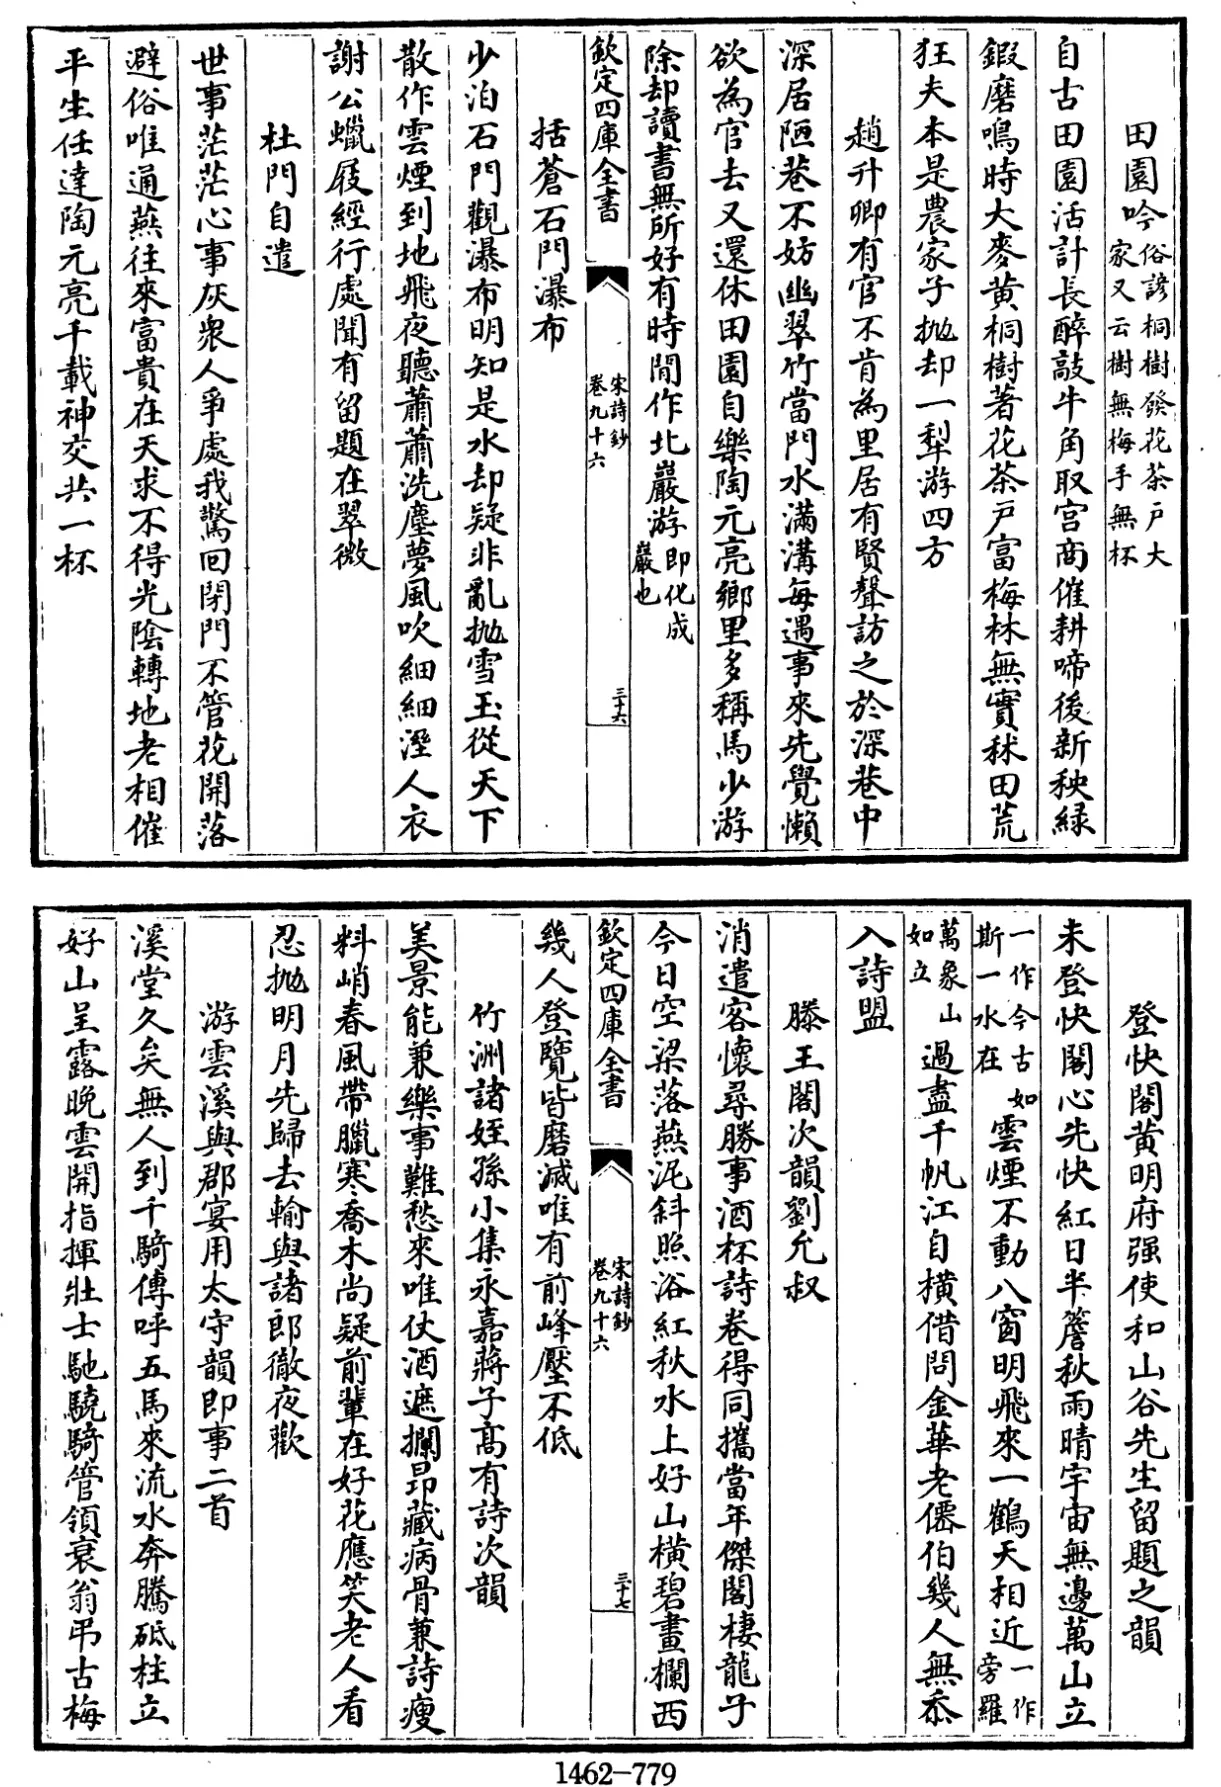 田園吟俗諺桐樹發花茶戶大家又云樹無梅手無杯
自古田園活計長醉敲牛角取宫商催耕啼後新秧緑
鍜磨鳴時大麥黄桐樹著花茶戸富梅林無實秫田荒
狂夫本是農家子抛却一犂游四方
趙升卿有官不肯為里居有賢聲訪之於深巷中
深居陋巷不妨幽翠竹當門水滿溝每遇事來先覺懶
欲為官去又還休田園自樂陶元亮鄉里多稱馬少游
除却讀書無所好有時閒作北巖游即化成巖也
欽定四庫全書
宋詩鈔
卷九十六
三十六
括蒼石門瀑布
少泊石門觀瀑布明知是水却疑非亂抛雪玉從天下
散作雲煙到地飛夜聽蕭蕭洗塵夢風吹細細溼人衣
謝公蠟屐經行處聞有留題在翠微
杜門自遣
世事茫茫心事灰衆人爭處我驚回閉門不管花開落
避俗唯通燕往來富貴在天求不得光陰轉地老相催
平生任達陶元亮千載神交共一杯
登快閣黄明府强使和山谷先生留題之韻
未登快閣心先快紅日半簷秋雨晴宇宙無邊萬山立
一作今古如斯一水在雲煙不動八窗明飛來一鶴天相近一作旁羅
萬象山如立過盡千帆江自横借問金華老僊伯幾人無忝
入詩盟
滕王閣次韻劉允叔
消遣客懷尋勝事酒杯詩卷得同攜當年傑閣棲龍子
今日空梁落燕泥斜照浴紅秋水上好山横碧畫欄西
欽定四庫全書
宋詩鈔
卷九十六
三十七
幾人登覽皆磨滅唯有前峰壓不低
竹洲諸姪孫小集永嘉蔣子高有詩次韻
美景能兼樂事難愁來唯仗酒遮攔昂藏病骨兼詩瘦
料峭春風帶臘寒喬木尚疑前輩在好花應笑老人看
忍抛明月先歸去輸與諸郎徹夜歡
游雲溪與郡宴用太守韻即事二首
溪堂久矣無人到千騎傳呼五馬來流水奔騰砥柱立
好山呈露晚雲開指揮壯士馳驍騎管領衰翁弔古梅
1462-779